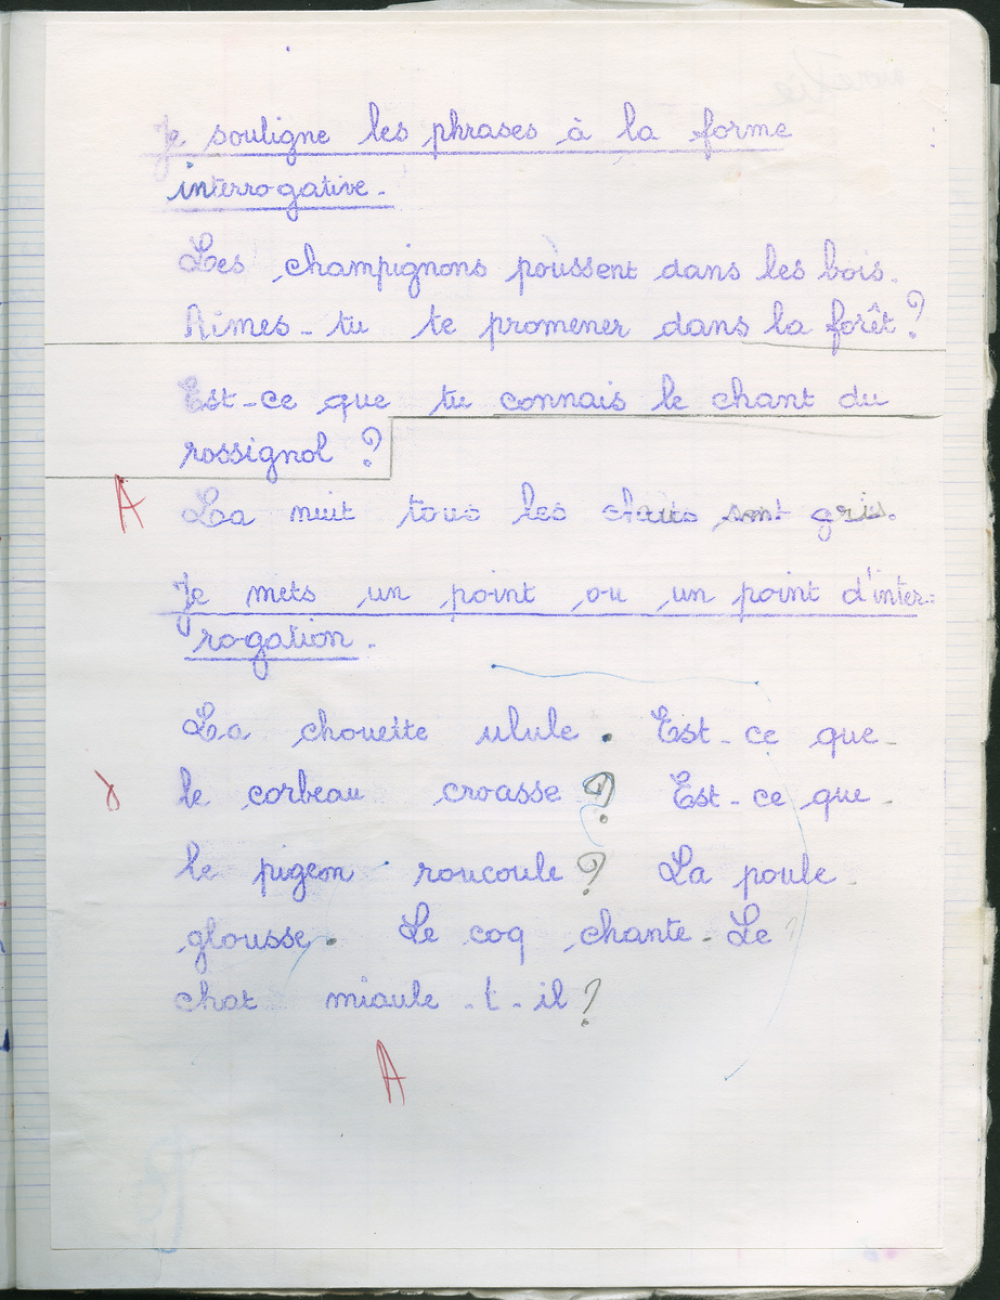 Je souligne les phrases à la forme
interrogative.
Les champignons poussent dans les bois.
Aimes-tu te promener dans la forêt ?
Est-ce que tu connais le chant du
rossignol ?
A
La nuit tous les chats sont gris.
Je mets un point ou un point d'inter-
rogation.
La chouette ulule. Est-ce que
le corbeau croasse ? Est-ce que
le pigeon roucoule ? La poule
glousse. Le coq chante. Le
chat miaule-t-il ?
A